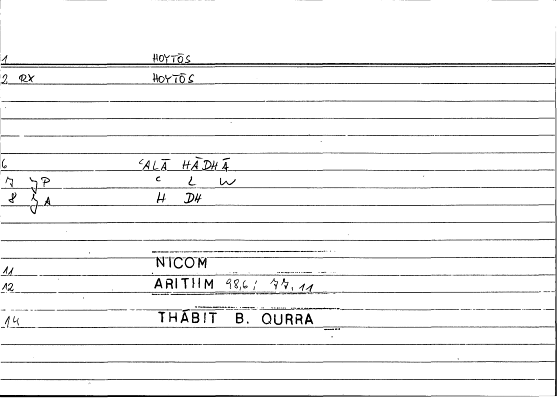 1 HOYTŌS
2 RX HOYTŌS
6 ʿALĀ HĀDHĀ
7 P ʿ L W
8 A H DH
11 NICOM
12 ARITIIM 98,6; 77,11
14 THĀBIT B. QURRA